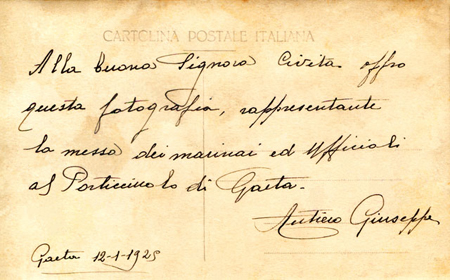 CARTOLINA POSTALE ITALIANA
Alla buona Signora Civita offro
questa fotografia, rappresentante
la messa dei marinai ed Ufficiali
al Porticciolo di Gaeta.
Giuseppe
Gaeta 12-1-1925